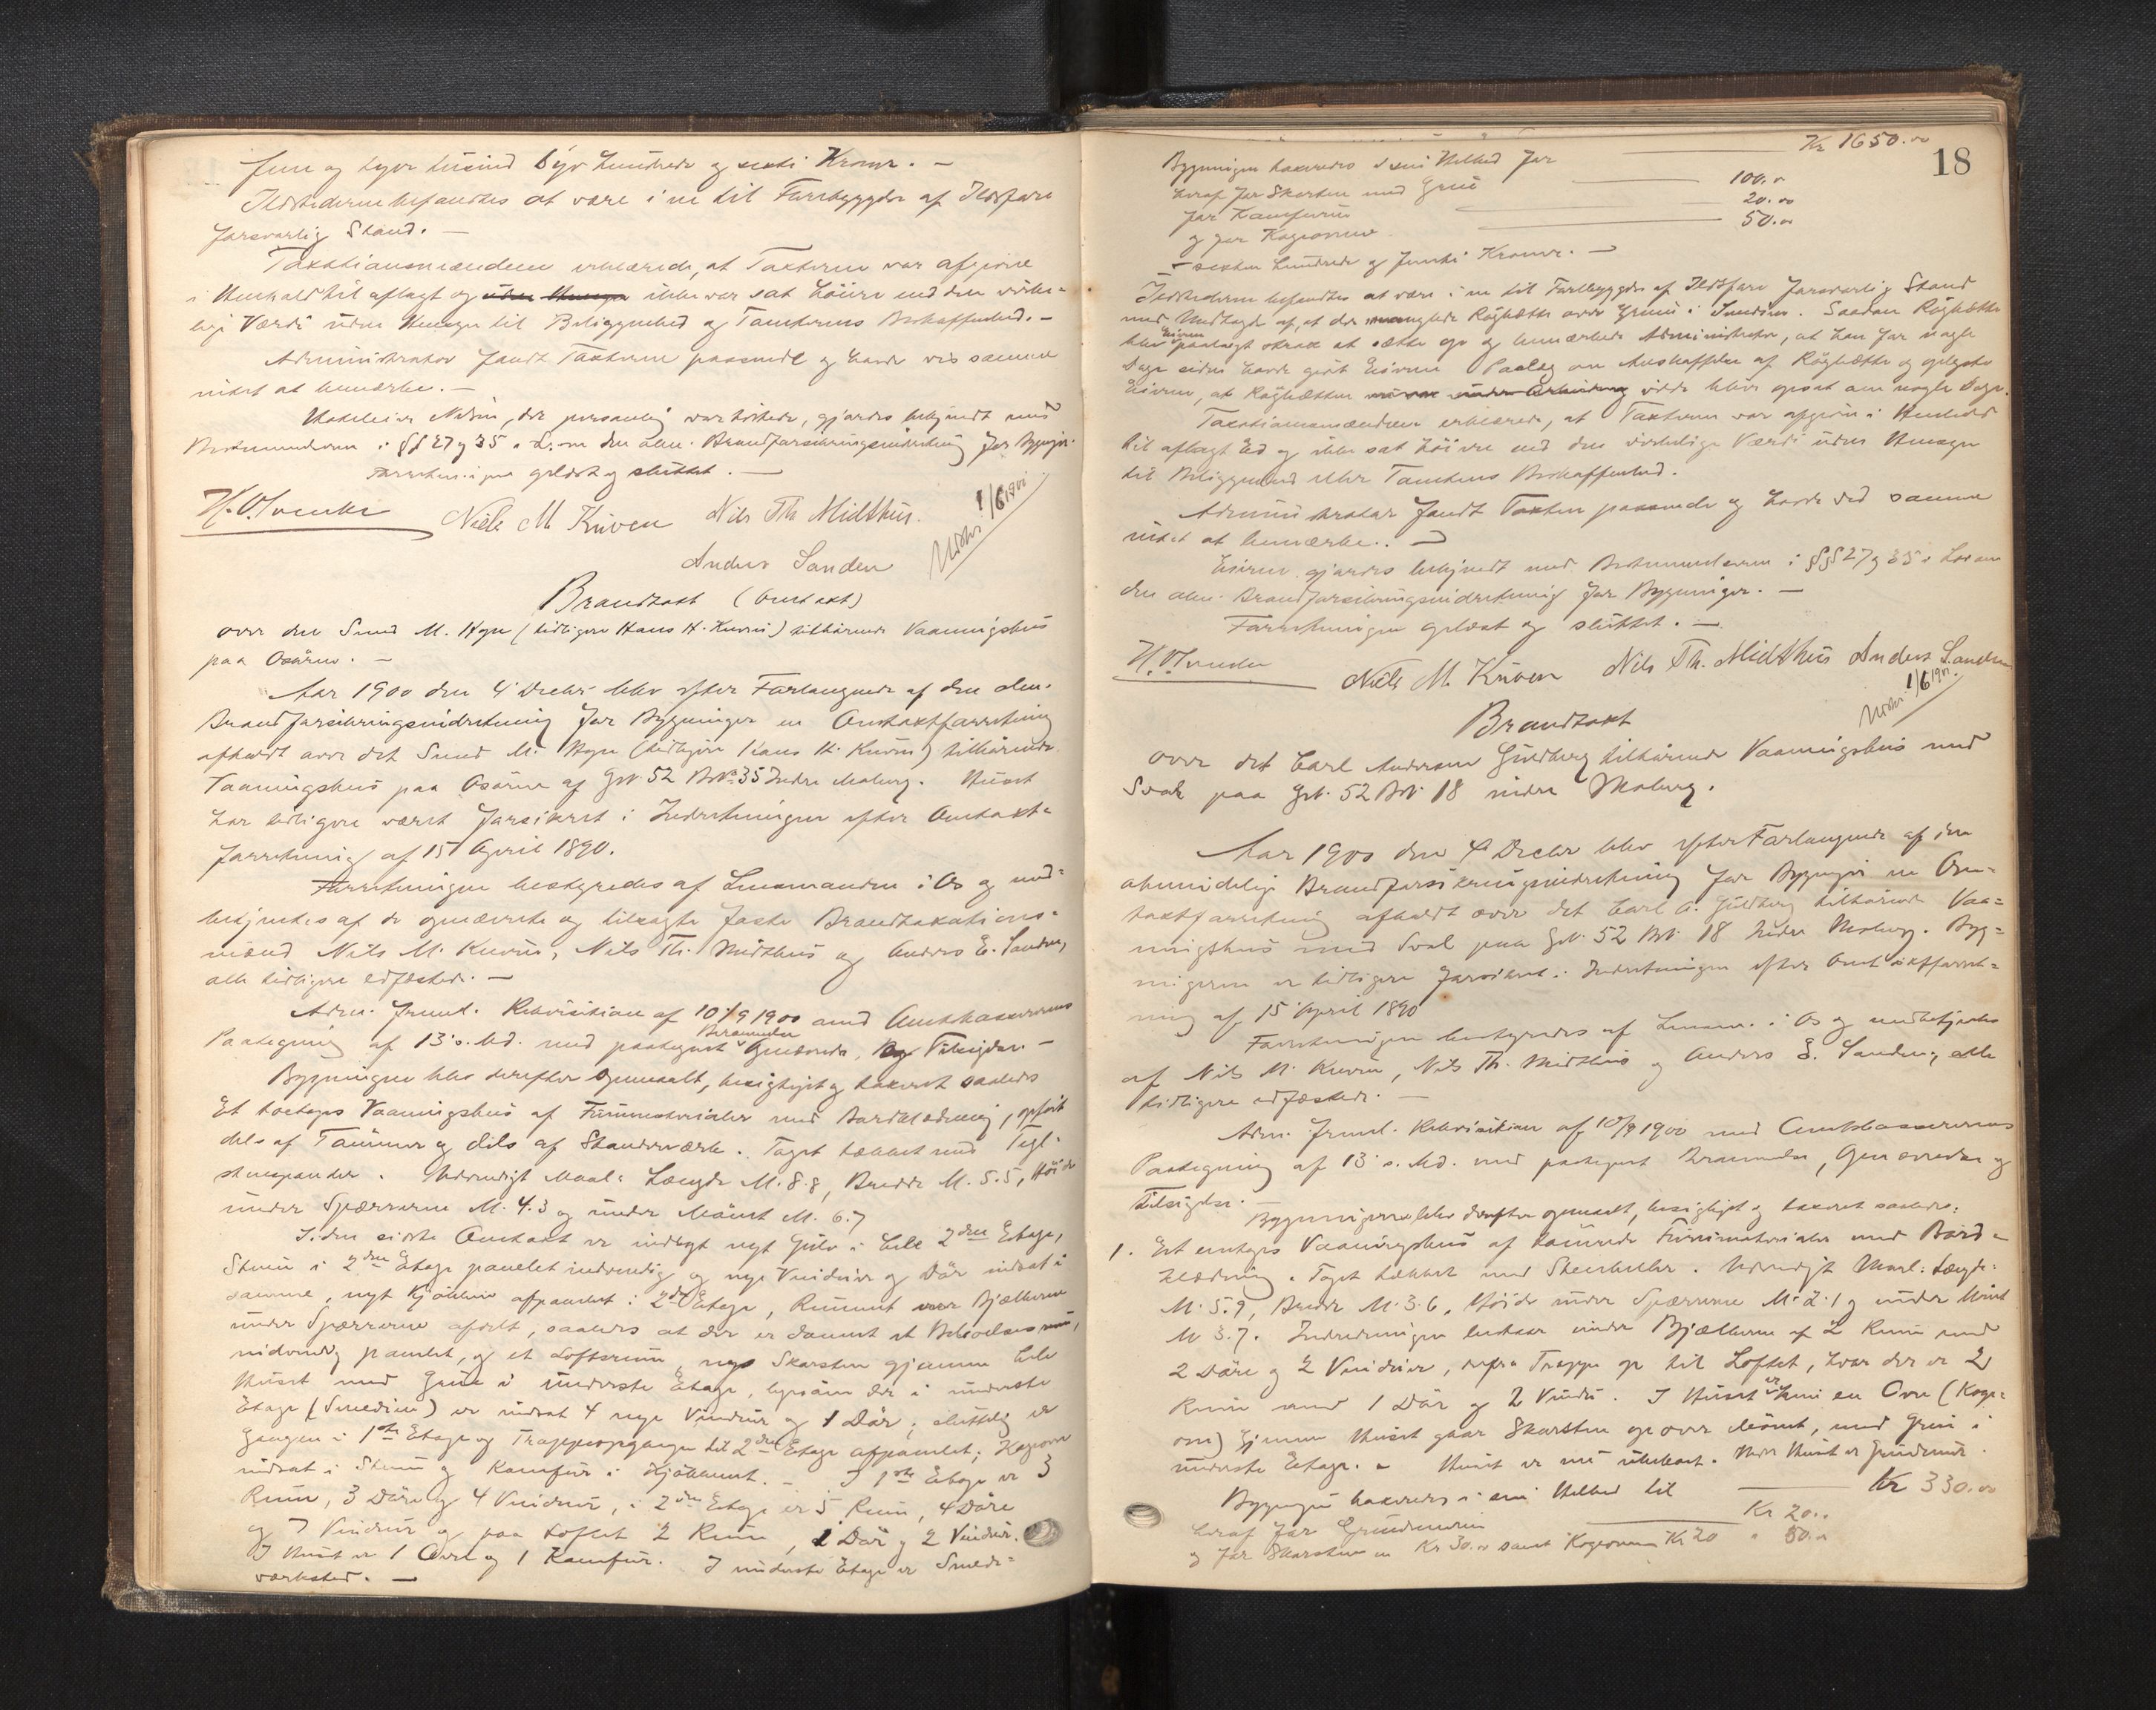 fem og tyve tusind syv hundrede og sexti Kroner. —
Ildstederne befandtes at være i en til Forebyggelse af Ildsfare
forsvarlig Stand. —
Taxationsmændene erklærede, at Taxterne var afgivne
i Henhold til aflagt og uden Hensyn ikke var sat höiere end den virke=
lige Værdi uden Hensyn til Beliggenhed og Tomternes Beskaffenhed. —
Administrator fandt Taxterne passende og havde ved samme
intet at bemærke. —
Nilsen, der personlig var tilstede, gjordes bekjendt med
Bestemmelserne i §§ 27 og 35 i Lov om den alm. Brandforsikringsindretning for Bygnin.
Forretningen oplæst og sluttet. —
Niels M. Kuven Nils Th. Midthus.
Anders Sanden
1/6 1901
Brandtaxt (Omtaxt)
over den M. Hope (tidligere Hans H. Kuven) tilhörende Vaaningshus
paa Osören. —
Aar 1900 den 4' Decbr. blev efter Forlangende af den alm.
Brandforsikringsindretning for Bygninger en Omtaxtforretning
afholdt over det M. Hope (tidligere Hans H. Kuven) tilhörende
Vaaningshus paa Osören af Gr. 52 Br. 35 Indre Moberg. Huset
har tidligere været forsikret i Indretningen efter Omtaxt=
forretning af 15 April 1890.
Forretningen bestyredes af Lensmanden i Os og med=
betjentes af de opnævnte og tilsagte faste Brandtaxations=
mænd Nils M. Kuven, Nils Th. Midthus og Anders E. Sanden,
alle tidligere edfæstede. —
Adm. freml. Rekvisition af 10/9 1900 med Amtskassererens
Paategning af 13 s. Md. med paategnet Berammelse Opnævnelse, og Tilsigelse. —
Bygningen blev derefter opmaalt, besigtiget og taxeret saaledes
Et toetages Vaaningshus af Furumaterialer med Bordklædning, opfört
dels af Tömmer og dels af Standerværk. Taget tækket med Tegl=
stenspander. Udvendigt Maal: Længde M. 8.8, Bredde M. 5.5, Höide
under Spærrerne M. 4.3 og under Mönet M. 6.7
Siden sidste Omtaxt er indlagt nyt Gulv i hele 2den Etage,
Stuen i 2den Etage panelet indvendig og nye Vinduer og Dör indsat i
samme, nyt Kjökken afpanelet i 2den Etage, Rummet over Bjælkerne
under Spærrerne afdelt, saaledes at der er dannet et
indvendig panelet, og et Loftsrum, nye Skorsten gjennem hele
Huset med Grue i underste Etage, ligesom der i underste
Etage (Smedien) er indsat 4 nye Vinduer og 1 Dör; sluttelig er
Gangen i 1ste Etage og Trappeopgangen til 2den Etage afpanelet; Kogeovn
indsat i Stuen og Komfur i Kjökkenet. — I 1ste Etage er 3
Rum, 3 Döre og 4 Vinduer, i 2den Etage er 5 Rum, 4 Döre
og 7 Vinduer og paa Loftet 2 Rum, 1 Dör og 2 Vinduer.
I Huset er 1 Ovn og 1 Komfur. I underste Etage er Smede=
værksted. —
18
Bygningen taxeredes i sin Helhed for Kr 1650.00
heraf for Skorsten med Grue 100.00
for Komfuren 20.00
og for Kogeovnene 50.00
— sexten hundrede og femti Kroner. —
Ildstederne befandtes at være i en til Forebyggelse af Ildsfare forsvarlig Stand
med Undtagelse af, at der manglede Röghætte over Gruen i Smedien. Saadan Röghætte
blev Eieren paalagt strax at sætte op og bemærkede Administrator, at han for nogle
Dage siden havde givet Eieren Paalæg om Anskaffelse af Röghætte og oplyste
Eieren, at Röghætten var under Arbeidning vilde blive opsat om nogle Dage.
Taxationsmændene erklærede, at Taxterne var afgivne i Henhold
til aflagt Ed og ikke sat höiere end den virkelige Værdi uden Hensyn
til Beliggenhed eller Tomtens Beskaffenhed.
Administrator fandt Taxten passende og havde ved samme
intet at bemærke. —
Eieren gjordes bekjendt med Bestemmelserne i §§ 27 og 35 i Lov om
den alm. Brandforsikringsindretning for Bygninger. —
Forretningen oplæst og sluttet. —
Niels M. Kuven Nils Th. Midthus Anders Sanden
1/6 1901.
Brandtaxt
over det Carl Anderson Guldberg tilhörende Vaaningshus med
Sval paa Gr. 52 Br. 18 indre Moberg.
Aar 1900 den 4 Decbr blev efter Forlangende af den
almindelige Brandforsikringsindretning for Bygninger en Om=
taxtforretning afholdt over det Carl A. Guldberg tilhörende Vaa=
ningshus med Sval paa Gr. 52 Br. 18 Indre Moberg. Byg=
ningerne er tidligere forsikret i Indretningen efter Omtaxtforret=
ning af 15 April 1890
Forretningen bestyredes af Lensm. i Os og medbetjentes
af Nils M. Kuven, Nils Th. Midthus og Anders E. Sanden, alle
tidligere edfæstede. —
Adm. freml. Rekvisition af 10/9 1900 med Amtskassererens
Paategning af 13 s. Md. med paategnet Berammelse, Opnævnelse og
Tilsigelse. —
Bygningerne blev derefter opmaalt, besigtiget og taxeret saaledes:
1. Et enetages Vaaningshus af tömrede Furumaterialer med Bord=
klædning. Taget tækket med Stenheller. Udvendigt Maal: Længde:
M. 5.9, Bredde M. 3.6, Höide under Spærrerne M. 2.1 og under Mönet
M 3.7. Indredningen bestaar under Bjælkerne af 2 Rum med
2 Döre og 2 Vinduer, derfra Trappe op til Loftet, hvor der er 2
Rum med 1 Dör og 2 Vinduer. I Huset er kun en Ovn (Koge=
ovn) Gjennem Huset gaar Skorsten op over Mönet, med Grue i
underste Etage. — Huset er nu ubeboet. Under Huset er Grundmur.
Bygningen taxeredes i sin Helhed til Kr 330.00
heraf for Grundmuren Kr 20..
og for Skorstenen Kr 30.00 samt Kogeovnen Kr 20 " 50.00